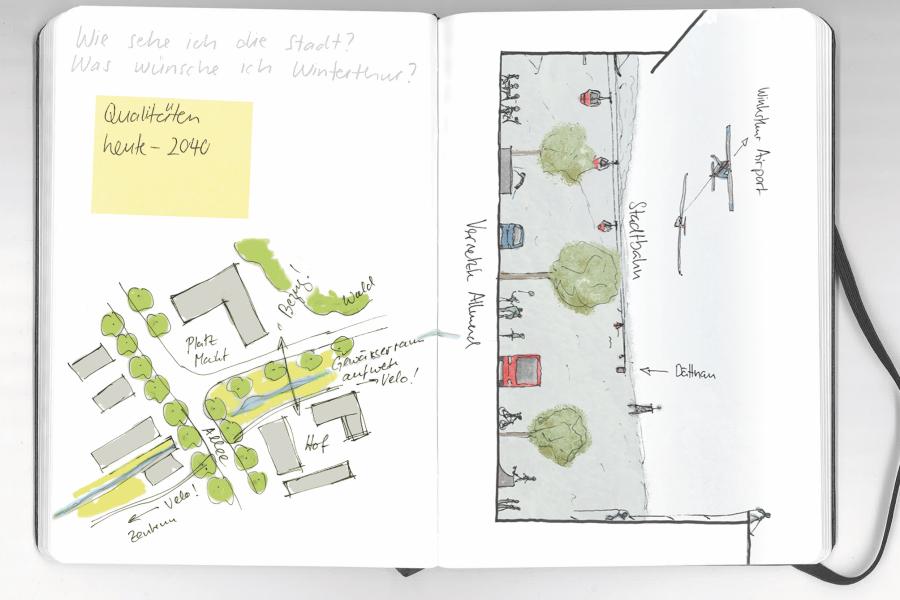 Wie sehe ich die Stadt?
Was wünsche ich Winterthur?
Qualitäten
heute – 2040
Bezug!
Wald
Platz
Markt
Gewässerraum
aufwerten
Velo!
Allee
Hof
Velo!
Zentrum
Vernetzte Allmend
Stadtbahn
Dättnau
Winterthur Airport